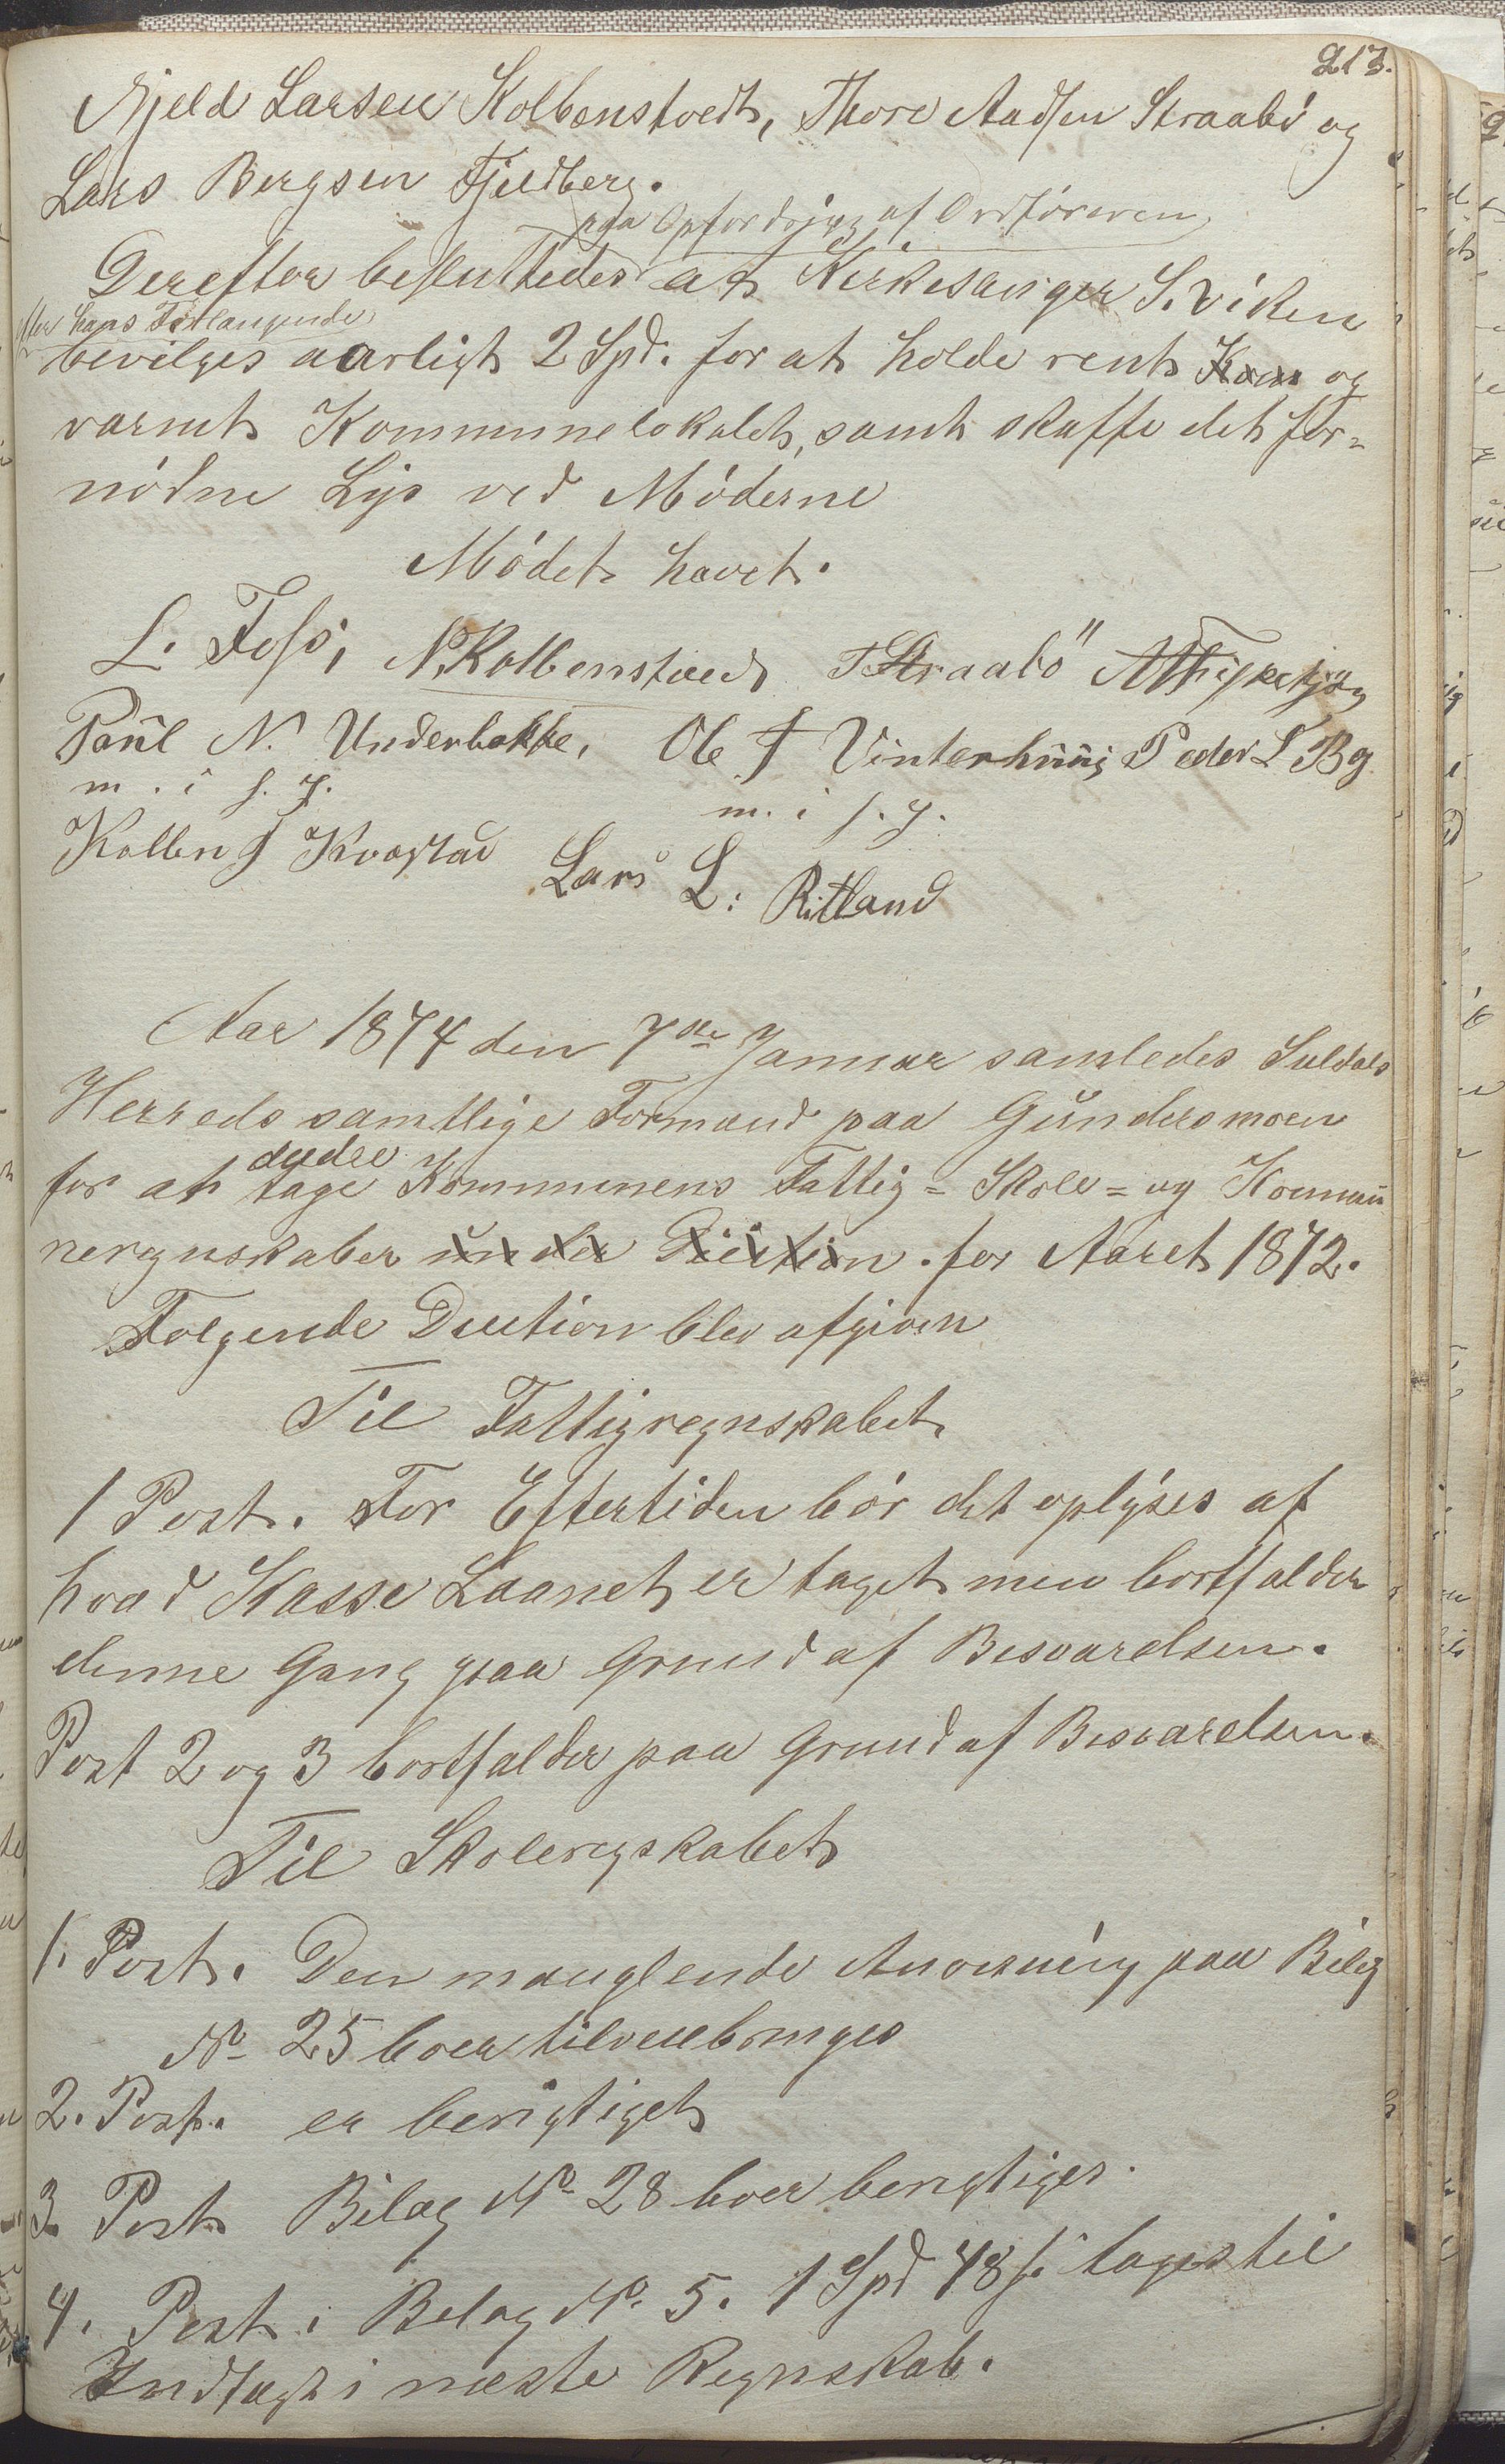 213.
Njeld Larsen Kolbenstvedt, Thore Aadsen Straabö og
Lars Bergsen Fjeldberg.
paa Opfordring af Ordföreren
Derefter besluttedes at Kirkesanger S. Viken
efter hans Forlangende
bevilges aarligt 2 Spd. for at holde rent og
varmt Kommunelokalet, samt skaffe det for=
nödne Lys ved Möderne
Mödet hævet.
L. Foss, N. Kolbenstvedt T Straabö
Paul N. Underbakke, Ole T Vinterhuus Peder L Bg
m. i f. P. m. i f. P.
Kolben J Kvæstad Lars L: Ritland
Aar 1874 den 7de Januar samledes Suldals
Herreds samtlige Formænd paa Gundersmoen
decdere
for at tage Kommunens Fattig= Skole= og Kommu
neregnskaber under Decition. for Aaret 1872.
Folgende Decition blev afgiven
Til Fattigregnskabet
1 Post. For Eftertiden bör det oplyses af
hvad Kasse Laanet er taget men bortfalder
denne Gang paa Grund af Besvarelsen.
Post 2 og 3 bortfalder paa Grund af Besvarelsen.
Til Skoleregskabet
1. Post. Den manglende Anvisning paa Bilag
No 25 boer tilveiebringes
2. Post. er berigtiget
3. Post Bilag No 28 boer berigtiges.
4. Post. Belag No. 5. 1 Spd 48 s. tages til
Indtægt i næste Regnskab.